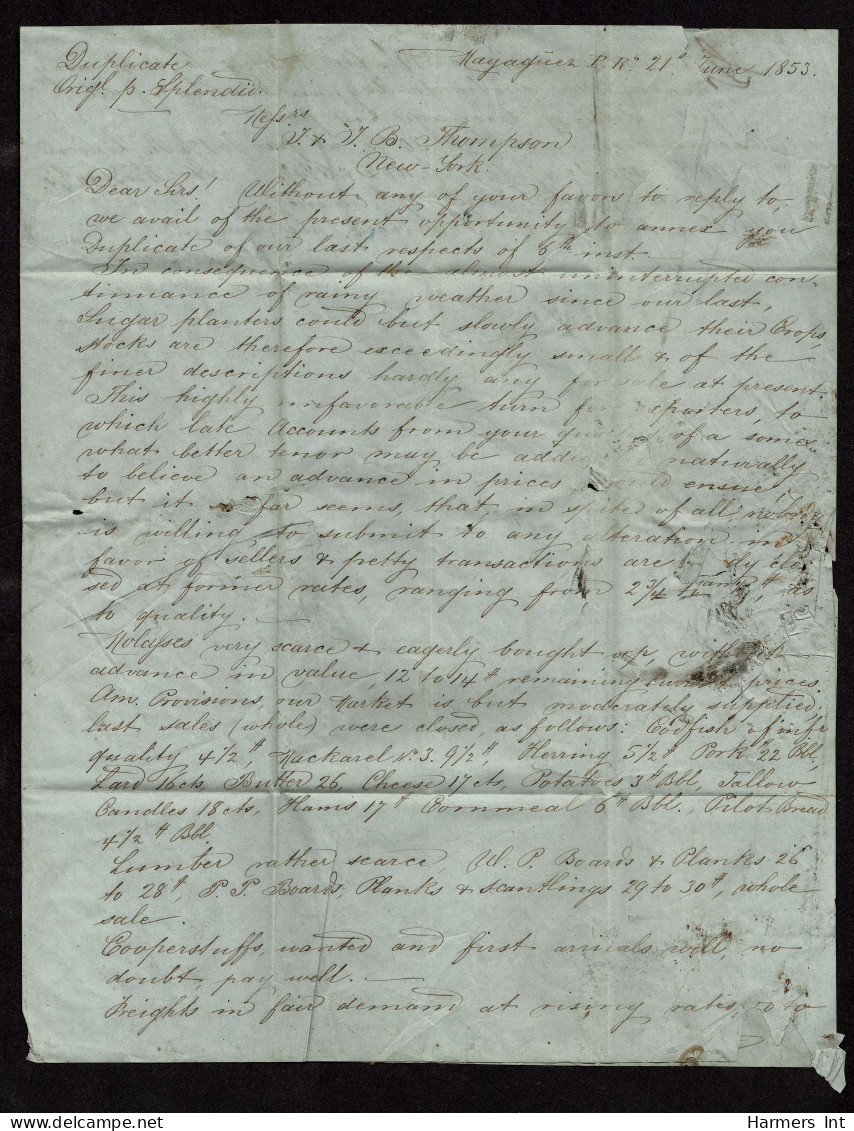 Duplicate
Origl. p. Splendid.
Mayagüez P. Ro. 21st June 1853.
Messrs
J. & J. B. Thompson
New-York.
Dear Sirs! Without any of your favors to reply to,
we avail of the present opportunity to annex you
Duplicate of our last respects of 6th inst.
In consequence of the almost uninterrupted con-
tinuance of rainy weather since our last,
Sugar planters could but slowly advance their Crops
Stocks are therefore exceedingly small & of the
finer descriptions hardly any for sale at present.
This highly unfavorable turn for exporters, to
which late Accounts from your of a some
what better tenor may be added naturally
to believe an advance in prices would ensue,
but it so far seems, that in spite of all nobody
is willing to submit to any alteration in
favor of sellers & petty transactions are clo
sed at former rates, ranging from 2 3/4 as
to quality. —
Molasses very scarce & eagerly bought up, without
advance in value, 12 to 14 remaining prices.
Am. Provisions, our Market is but moderately supplied.
last sales (whole) were closed, as follows: Codfish of infr
quality 4 1/2, Mackarel No. 3. 9 1/2, Herring 5 1/2 Pork 22 Bbl,
Lard 16 cts, Butter 26, Cheese 17 cts, Potatoes 3 Bbl, Tallow
Candles 18 cts, Hams 17 Cornmeal 6 Bbl., Pilot Bread
4 1/2 Bbl.
Lumber rather scarce, W. P. Boards & Planks 26
to 28, P. P. Boards, Planks & Scantlings 29 to 30, whole
sale.
Cooperstuffs, wanted and first arrivals will, no
doubt, pay well. —
Freights in fair demand at rising rates, to
Harmers Int